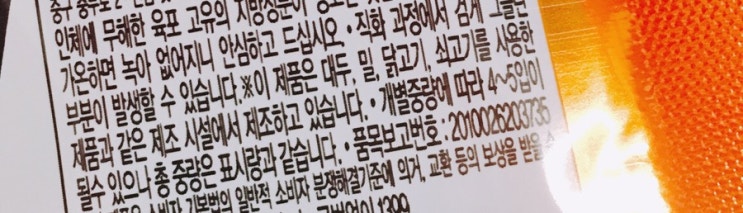 인체에 무해한 육포 고유의 지방성분이
가온하면 녹아 없어지니 안심하고 드십시오 • 직화 과정에서 검게 그을린
부분이 발생할 수 있습니다.※이 제품은 대두, 밀, 닭고기, 쇠고기를 사용한
제품과 같은 제조 시설에서 제조하고 있습니다. • 개별중량에 따라 4~5입이
될수 있으나 총 중량은 표시량과 같습니다. • 품목보고번호 : 2010026203735
소비자 기본법의 일반적 소비자 분쟁해결기준에 의거, 교환 등의 보상을 받을 수
국번없이 1399